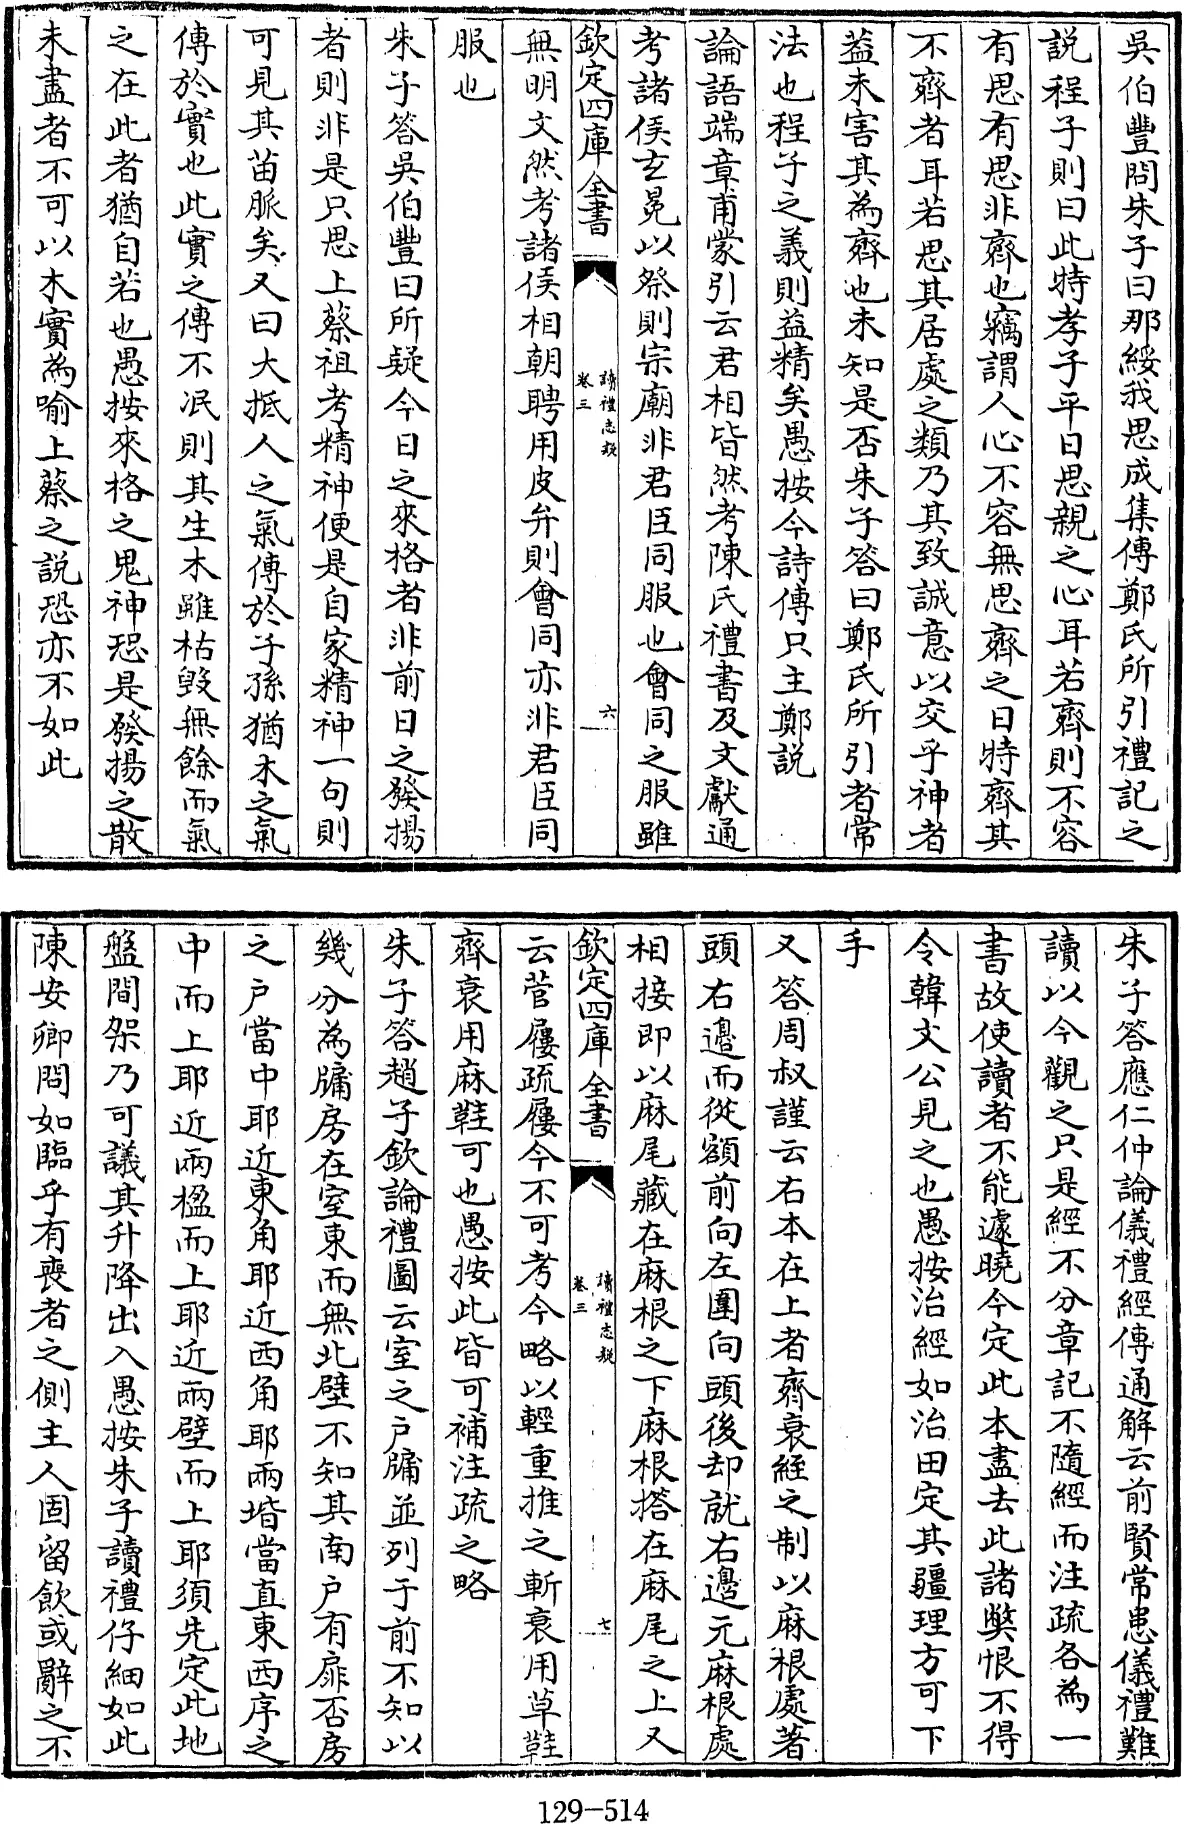 吳伯豐問朱子曰那綏我思成集傳鄭氏所引禮記之
說程子則曰此特孝子平日思親之心耳若齊則不容
有思有思非齊也竊謂人心不容無思齊之日特齊其
不齊者耳若思其居處之類乃其致誠意以交乎神者
葢未害其為齊也未知是否朱子答曰鄭氏所引者常
法也程子之義則益精矣愚按今詩傳只主鄭說
論語端章甫蒙引云君相皆然考陳氏禮書及文獻通
考諸侯玄冕以祭則宗廟非君臣同服也會同之服雖
欽定四庫全書
讀禮志疑
卷三
六
無明文然考諸侯相朝聘用皮弁則會同亦非君臣同
服也
朱子答吳伯豐曰所疑今日之來格者非前日之發揚
者則非是只思上蔡祖考精神便是自家精神一句則
可見其苗脈矣又曰大抵人之氣傳於子孫猶木之氣
傳於實也此實之傳不泯則其生木雖枯毀無餘而氣
之在此者猶自若也愚按來格之鬼神恐是發揚之散
未盡者不可以木實為喻上蔡之說恐亦不如此
朱子答應仁仲論儀禮經傳通解云前賢常患儀禮難
讀以今觀之只是經不分章記不隨經而注疏各為一
書故使讀者不能遽曉今定此本盡去此諸弊恨不得
令韓文公見之也愚按治經如治田定其疆理方可下
手
又答周叔謹云右本在上者齊衰絰之制以麻根處著
頭右邉而從額前向左圍向頭後却就右邉元麻根處
相接即以麻尾藏在麻根之下麻根搭在麻尾之上又
欽定四庫全書
讀禮志疑
卷三
七
云菅屨疏屨今不可考今略以輕重推之斬衰用草鞋
齊衰用麻鞋可也愚按此皆可補注疏之略
朱子答趙子欽論禮圖云室之戶牖並列于前不知以
幾分為牖房在室東而無北壁不知其南戶有扉否房
之戶當中耶近東角耶近西角耶兩堦當直東西序之
中而上耶近兩楹而上耶近兩壁而上耶須先定此地
盤間架乃可議其升降出入愚按朱子讀禮仔細如此
陳安卿問如臨乎有喪者之側主人固留飲或辭之不
129-514